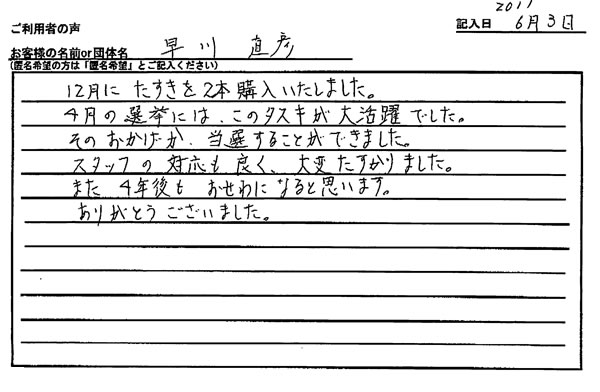 ご利用者の声
2011
記入日 6月3日
お客様の名前or団体名 早川 直彦
(匿名希望の方は「匿名希望」とご記入ください)
12月に たすきを 2本購入いたしました。
4月の選挙には、このタスキが 大活躍でした。
そのおかげか、当選することができました。
スタッフの 対応も 良く、大変たすかりました。
また 4年後も おせわに なると思います。
ありがとうございました。